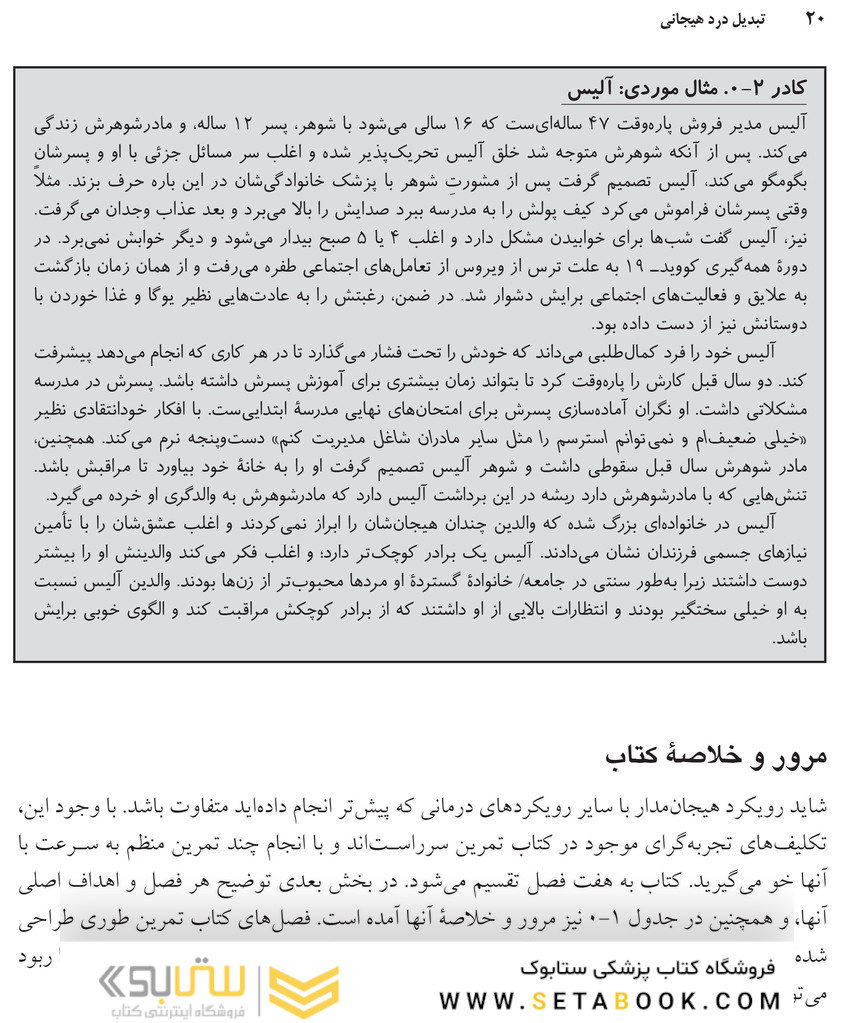 ۲۰ تبدیل درد هیجانی
کادر ۲-۰. مثال موردی: آلیس
آلیس مدیر فروش پاره‌وقت ۴۷ ساله‌ای‌ست که ۱۶ سالی می‌شود با شوهر، پسر ۱۲ ساله، و مادرشوهرش زندگی
می‌کند. پس از آنکه شوهرش متوجه شد خلق آلیس تحریک‌پذیر شده و اغلب سر مسائل جزئی با او و پسرشان
بگومگو می‌کند، آلیس تصمیم گرفت پس از مشورتِ شوهر با پزشک خانوادگی‌شان در این باره حرف بزند. مثلاً
وقتی پسرشان فراموش می‌کرد کیف پولش را به مدرسه ببرد صدایش را بالا می‌برد و بعد عذاب وجدان می‌گرفت.
نیز، آلیس گفت شب‌ها برای خوابیدن مشکل دارد و اغلب ۴ یا ۵ صبح بیدار می‌شود و دیگر خوابش نمی‌برد. در
دورهٔ همه‌گیری کووید-۱۹ به علت ترس از ویروس از تعامل‌های اجتماعی طفره می‌رفت و از همان زمان بازگشت
به علایق و فعالیت‌های اجتماعی برایش دشوار شد. در ضمن، رغبتش را به عادت‌هایی نظیر یوگا و غذا خوردن با
دوستانش نیز از دست داده بود.
آلیس خود را فرد کمال‌طلبی می‌داند که خودش را تحت فشار می‌گذارد تا در هر کاری که انجام می‌دهد پیشرفت
کند. دو سال قبل کارش را پاره‌وقت کرد تا بتواند زمان بیشتری برای آموزش پسرش داشته باشد. پسرش در مدرسه
مشکلاتی داشت. او نگران آماده‌سازی پسرش برای امتحان‌های نهایی مدرسهٔ ابتدایی‌ست. با افکار خودانتقادی نظیر
«خیلی ضعیف‌ام و نمی‌توانم استرسم را مثل سایر مادران شاغل مدیریت کنم» دست‌وپنجه نرم می‌کند. همچنین،
مادر شوهرش سال قبل سقوطی داشت و شوهر آلیس تصمیم گرفت او را به خانهٔ خود بیاورد تا مراقبش باشد.
تنش‌هایی که با مادرشوهرش دارد ریشه در این برداشت آلیس دارد که مادرشوهرش به والدگری او خرده می‌گیرد.
آلیس در خانواده‌ای بزرگ شده که والدین چندان هیجان‌شان را ابراز نمی‌کردند و اغلب عشق‌شان را با تأمین
نیازهای جسمی فرزندان نشان می‌دادند. آلیس یک برادر کوچک‌تر دارد؛ و اغلب فکر می‌کند والدینش او را بیشتر
دوست داشتند زیرا به‌طور سنتی در جامعه/ خانوادهٔ گستردهٔ او مردها محبوب‌تر از زن‌ها بودند. والدین آلیس نسبت
به او خیلی سختگیر بودند و انتظارات بالایی از او داشتند که از برادر کوچکش مراقبت کند و الگوی خوبی برایش
باشد.
مرور و خلاصهٔ کتاب
شاید رویکرد هیجان‌مدار با سایر رویکردهای درمانی که پیش‌تر انجام داده‌اید متفاوت باشد. با وجود این،
تکلیف‌های تجربه‌گرای موجود در کتاب تمرین سرراست‌اند و با انجام چند تمرین منظم به سرعت با
آنها خو می‌گیرید. کتاب به هفت فصل تقسیم می‌شود. در بخش بعدی توضیح هر فصل و اهداف اصلی
آنها، و همچنین در جدول ۱-۰ نیز مرور و خلاصهٔ آنها آمده است. فصل‌های کتاب تمرین طوری طراحی
شده ربود
فروشگاه کتاب پزشکی ستابوک
ستابوک
فروشگاه اینترنتی کتاب
WWW.SETABOOK.COM